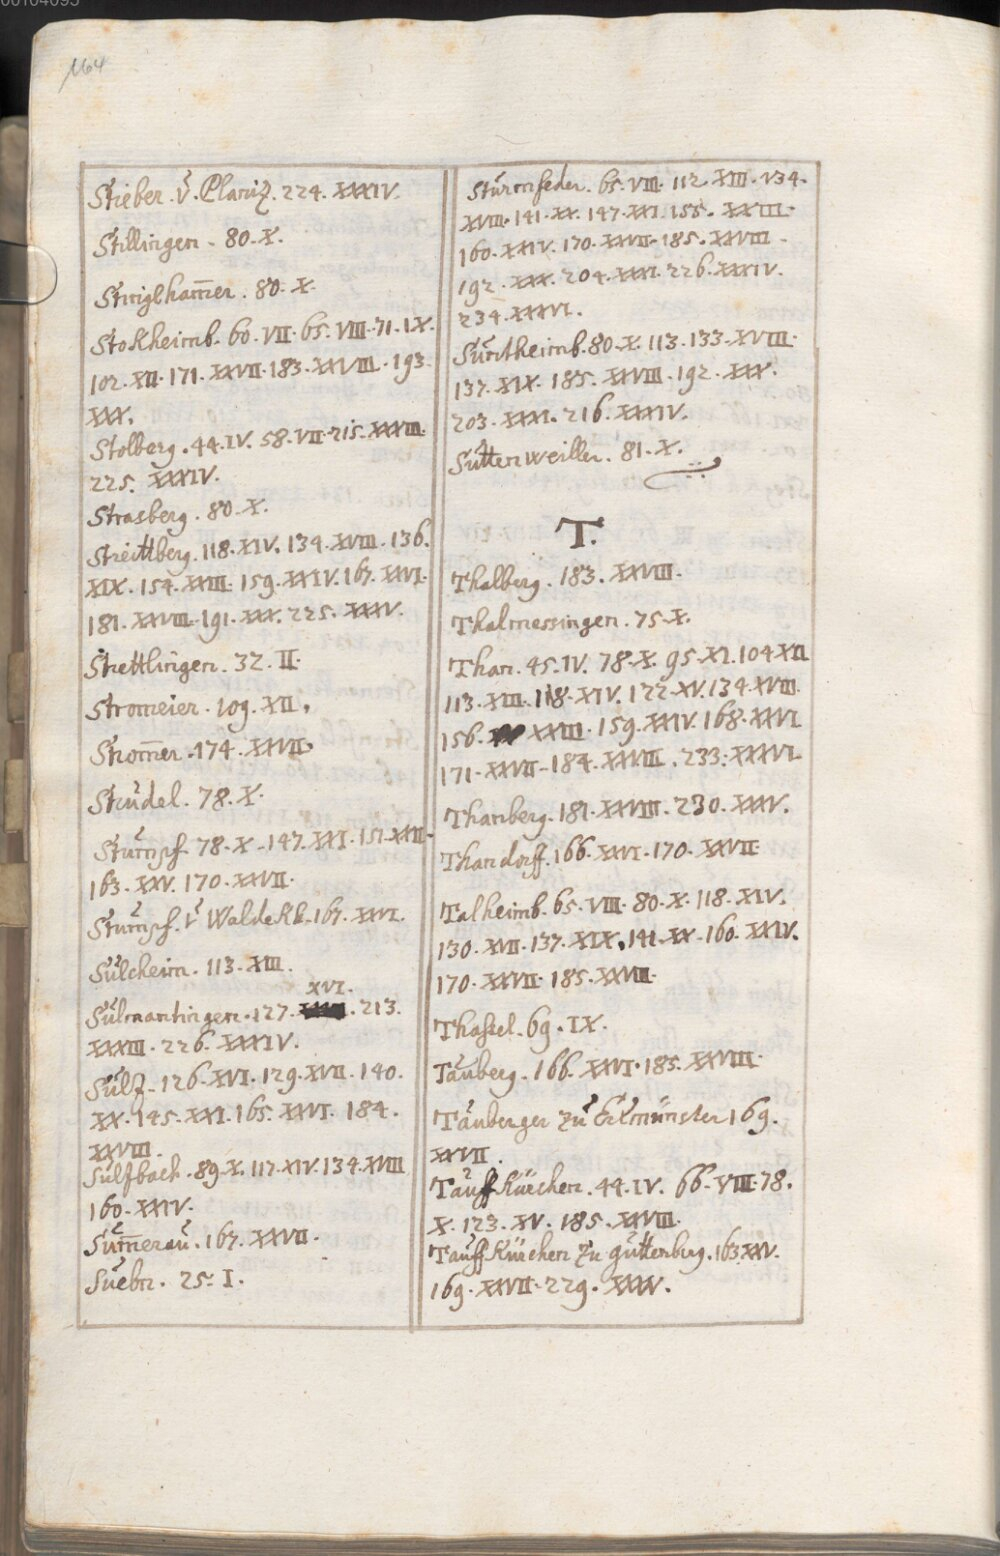 00104095
164
Stieber. v. Planiz. 224. XXXIV.
Stillingen. 80. X.
Stinglham̄er. 80. X.
Stokheimb. 60. VII. 65. VIII. 71. IX.
102. XII. 171. XXVII. 183. XXVIII. 193.
XXX.
Stolberg. 44. IV. 58. VII. 215. XXXIII.
225. XXXIV.
Strasberg. 80. X.
Streittberg. 118. XIV. 134. XVIII. 136.
XIX. 154. XXIII. 159. XXIV. 167. XXVI.
181. XXVIII. 191. XXX. 225. XXXIV.
Strettlingen. 32. II.
Stromeier. 109. XII.
Strom̄er. 174. XXVII.
Strudel. 78. X.
Sturmpf. 78. X. 147. XXI. 151. XXII.
163. XXV. 170. XXVII.
Sturmpf. v Waldekk. 167. XXVI.
Sulcheim. 113. XIII.
XVI.
Sulmantingen. 127. 213.
XXXIII. 226. XXXIV.
Sulz. 126. XVI. 129. XVII. 140.
XX. 145. XXI. 165. XXVI. 184.
XXVIII.
Sulfbach. 89. X. 117. XIV. 134. XVIII
160. XXIV.
Sum̄erau. 167. XXVII.
Suebn. 25. I.
Sturmfeder. 65. VIII. 112. XIII. 134.
XVIII. 141. XX. 147. XXI. 155. XXIII.
160. XXIV. 170. XXVII. 185. XXVIII.
192. XXX. 204. XXXI. 226. XXXIV.
234. XXXVI.
Suntheimb. 80. X. 113. 133. XVIII.
137. XIX. 185. XXVIII. 192. XXX.
203. XXXI. 216. XXXIV.
Suttenweiller. 81. X.
T.
Thalberg. 183. XXVIII.
Thalmessingen. 75. X.
Than. 45. IV. 78. X. 95. XI. 104. XII
113. XIII. 118. XIV. 122. XV. 134. XVIII.
156. XXIII. 159. XXIV. 168. XXVI
171. XXVII. 184. XXVIII. 233. XXXVI.
Thanberg. 181. XXVIII. 230. XXXV.
Thandorff. 166. XXVI. 170. XXVII.
Talheimb. 65. VIII. 80. X. 118. XIV.
130. XVII. 137. XIX. 141. XX. 160. XXIV.
170. XXVII. 185. XXVIII.
Thassel. 69. IX.
Tauberg. 166. XXVI. 185. XXVIII.
Tauberger zu 169.
XXVII.
Tauffkürchen. 44. IV. 66. VIII. 78.
X. 123. XV. 185. XXVIII.
Tauffkürchen zu guttenburg. 163 XXV.
169. XXVII. 229. XXXV.